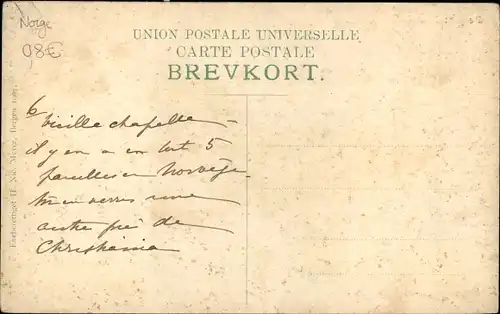 Norge
08€
UNION POSTALE UNIVERSELLE
CARTE POSTALE
BREVKORT.
6
Vieille chapelle
il y en a en tout 5
pareilles en Norvège.
en verrez une
autre près de
Christiania